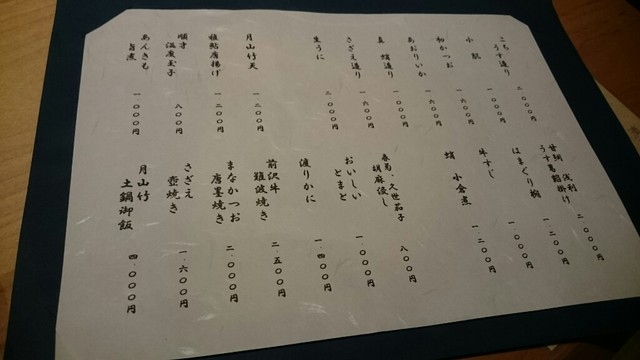 こち
うす造り 二、〇〇〇円
小肌 一、〇〇〇円
初かつお 一、六〇〇円
あおりいか 一、六〇〇円
真蛸造り 一、〇〇〇円
さざえ造り 一、六〇〇円
生うに 二、〇〇〇円
月山竹天 一、二〇〇円
稚鮎唐揚げ 一、二〇〇円
順才
温度玉子 八〇〇円
あんきも
旨煮 一、〇〇〇円
甘鯛 浅利
うす葛餡掛け 二、〇〇〇円
はまぐり椀 一、二〇〇円
牛すじ 一、〇〇〇円
蛸 小倉煮 一、二〇〇円
春菊・久世茄子
胡麻浸し 八〇〇円
おいしい
とまと 一、〇〇〇円
渡りかに 一、四〇〇円
前沢牛
難波焼き 二、五〇〇円
まなかつお
唐墨焼き 二、〇〇〇円
さざえ
壺焼き 一、六〇〇円
月山竹
土鍋御飯 四、〇〇〇円